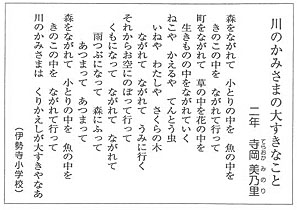 川のかみさまの大すきなこと
二年　寺岡 美乃里
てらおか みのり
森をながれて　小とりの中を　魚の中を
きのこの中を　ながれて行って
町をながれて　草の中を花の中を
生きものの中をながれていく
ねこや　かえるや　てんとう虫
いねや　わたしや　さくらの木
ながれて　ながれて　うみに行く
それからお空にのぼって行って
くもになって　ながれて　ながれて
雨つぶになって　森にふって
あつまって　あつまって
森をながれて　小とりの中を　魚の中を
きのこの中を　ながれて行って
川のかみさまは　くりかえしが大すきやなあ
（伊勢寺小学校）